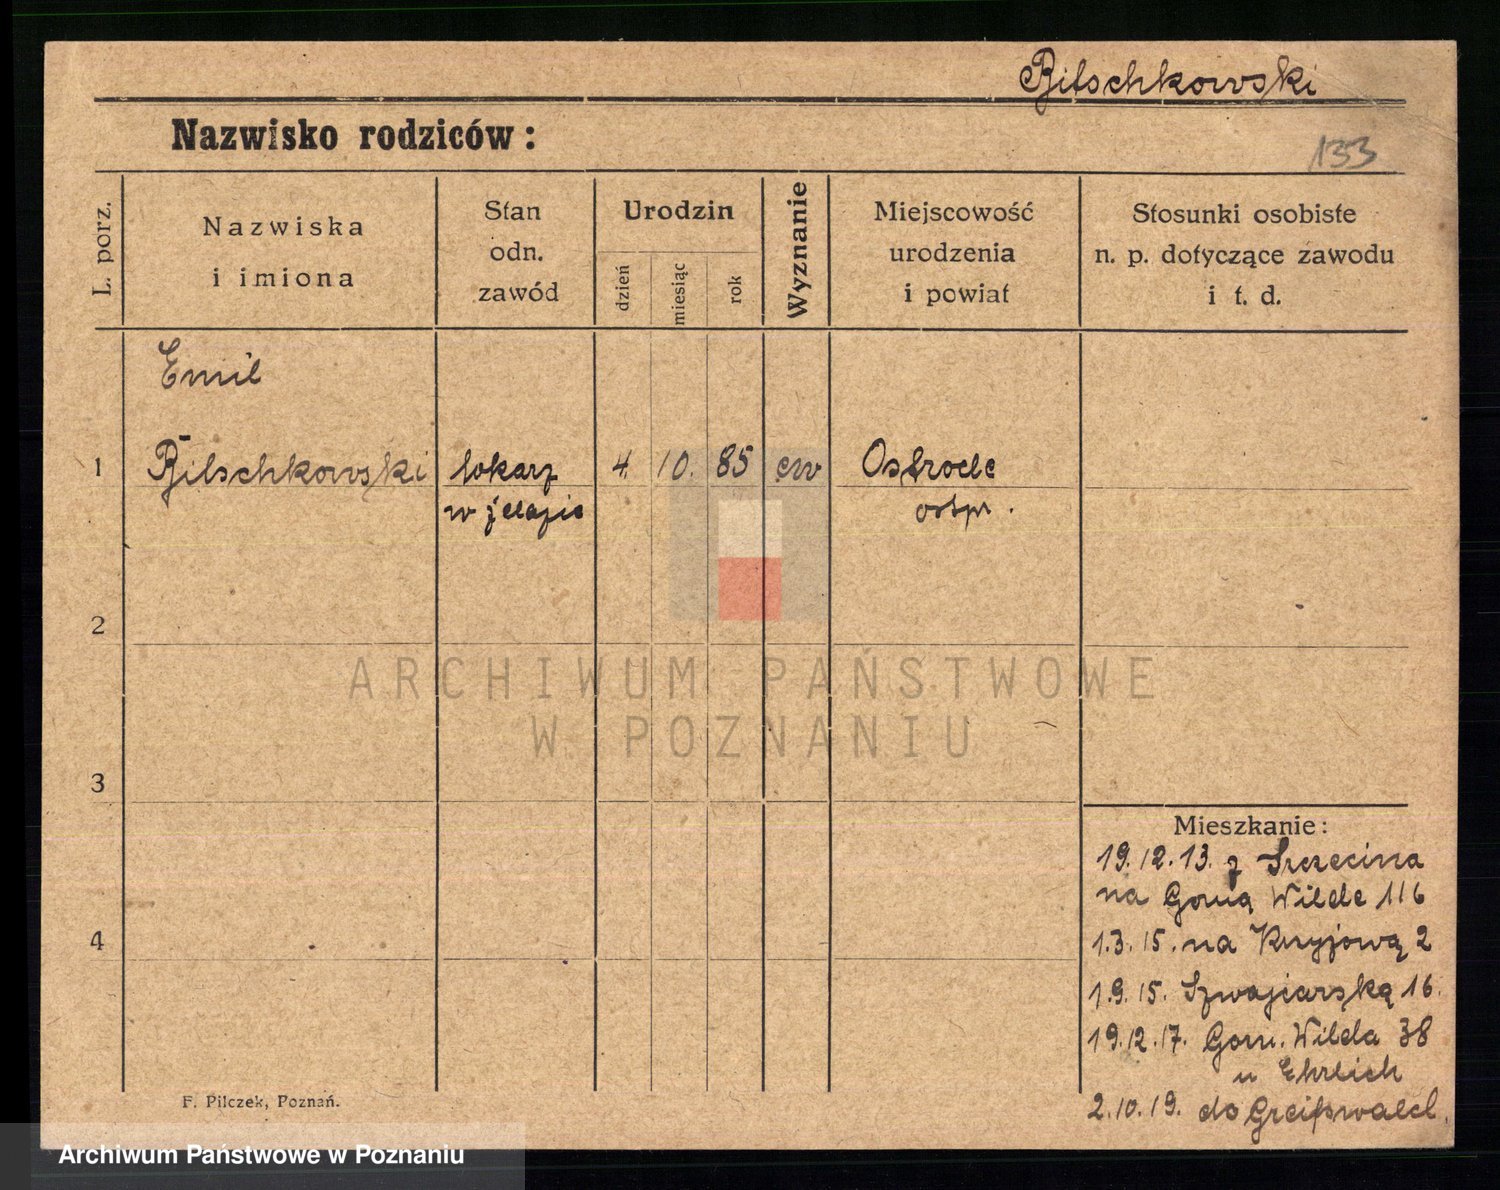 Bitschkowski
Nazwisko rodziców:
133
L. porz.
Nazwiska
i imiona
Stan
odn.
zawód
Urodzin
dzień
miesiąc
rok
Wyznanie
Miejscowość
urodzenia
i powiat
Stosunki osobiste
n. p. dotyczące zawodu
i t. d.
Emil
1 Bitschkowski tokarz 4. 10. 85 ew Ostrode
w żelazie ostpr.
2
ARCHIWUM PAŃSTWOWE
W POZNANIU
3
Mieszkanie:
19.12.13. z Szczecina
na Gorną Wilde 116
4
1.3.15. na 2
1.9.15. Szwajcarską 16.
19.12.17. Gorn. Wilda 38
u Ehrlich
2.10.19. do Greifswald.
F. Pilczek, Poznań.
Archiwum Państwowe w Poznaniu